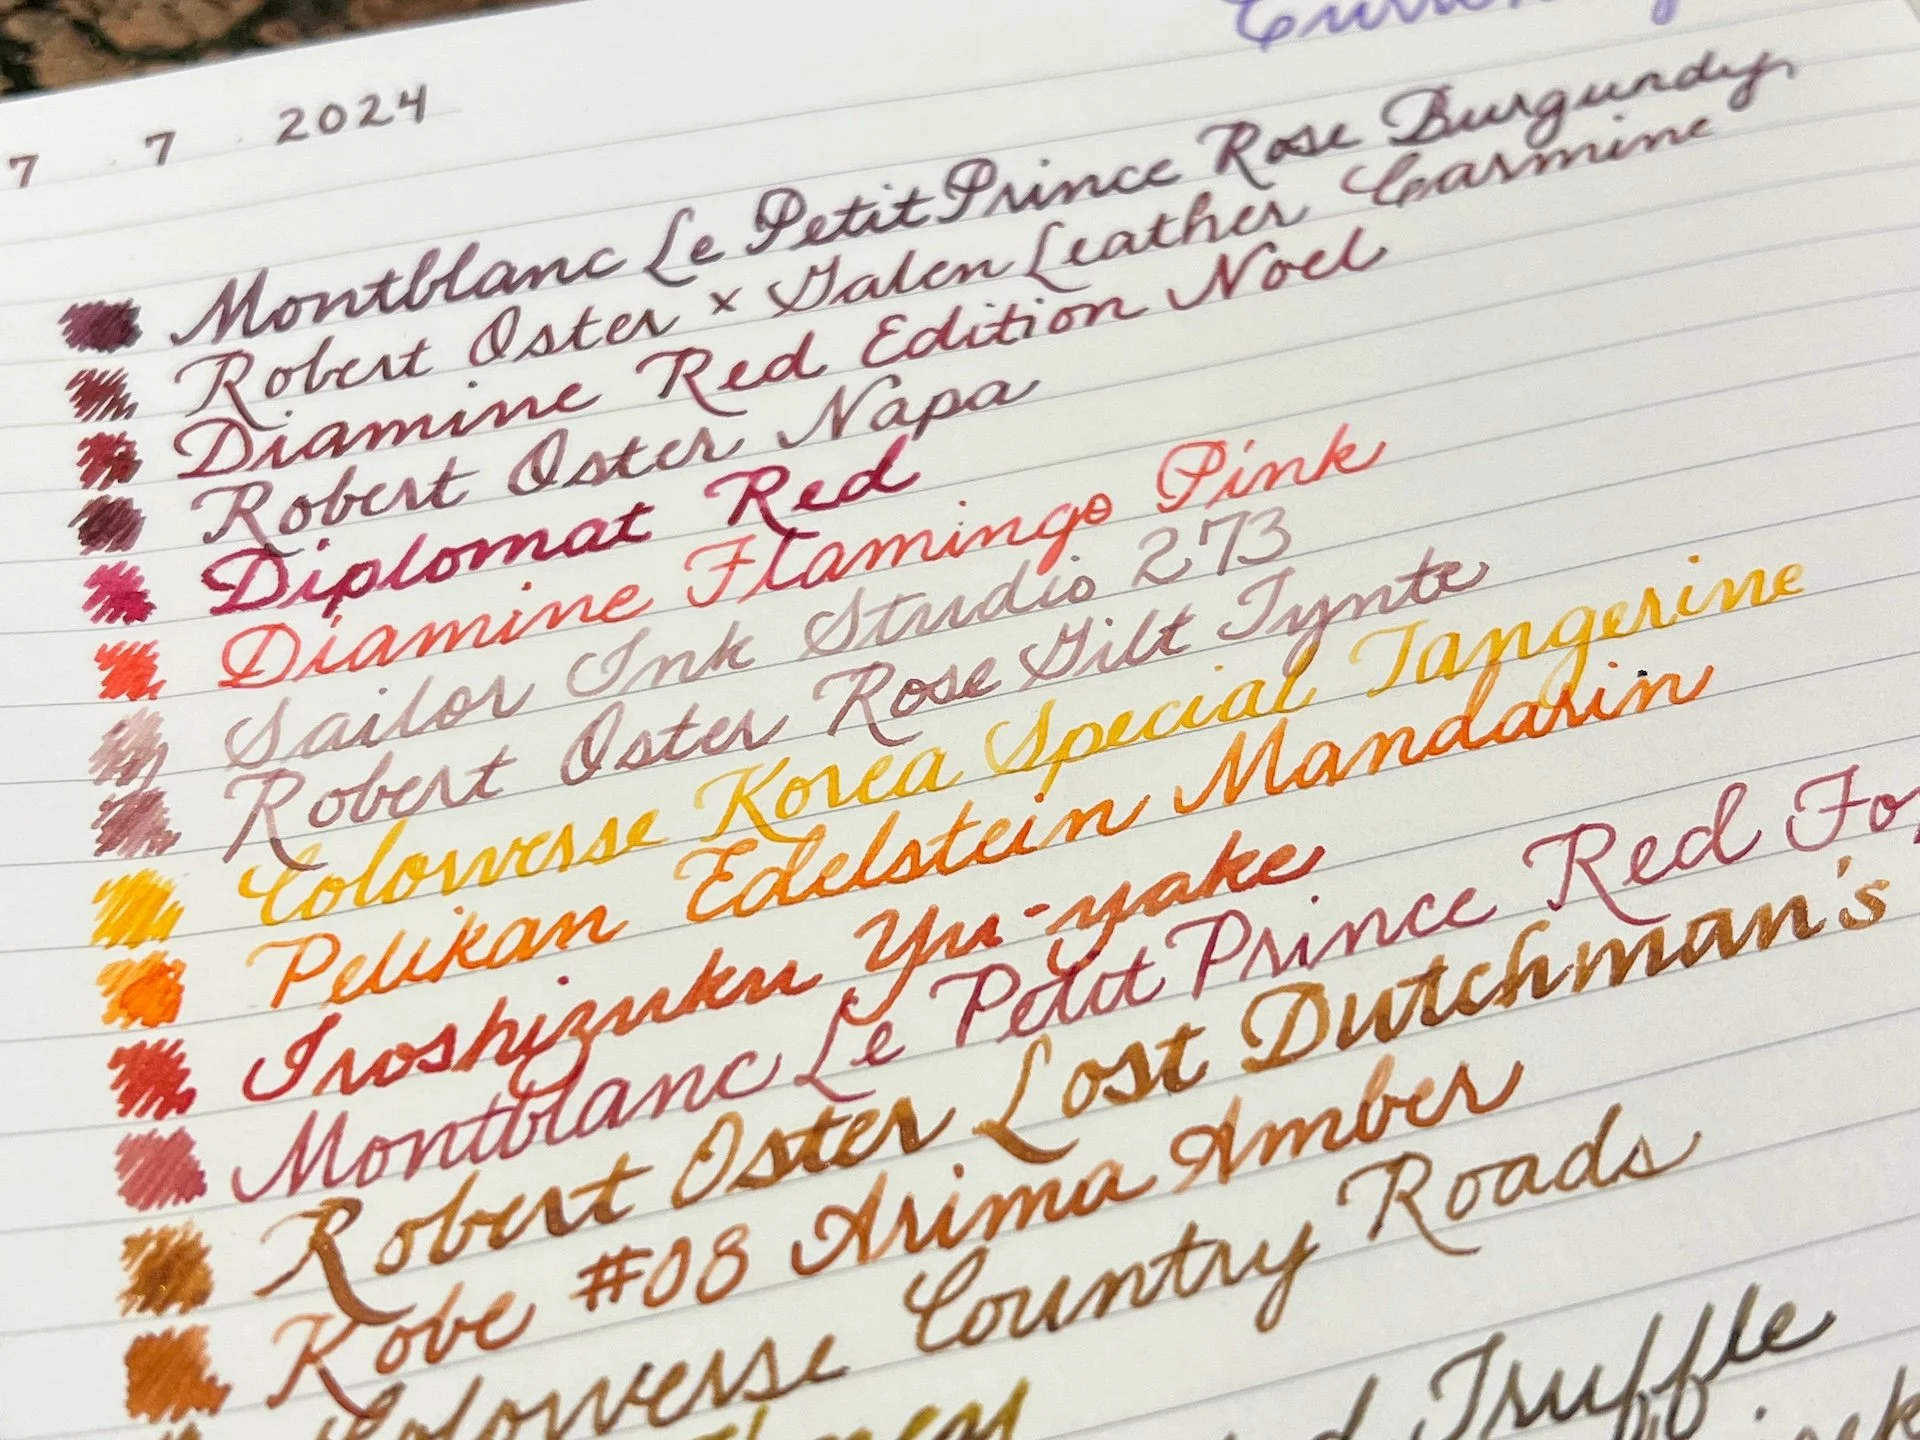 7 7 2024
Montblanc Le Petit Prince Rose Burgundy
Robert Oster × Galen Leather Carmine
Diamine Red Edition Noel
Robert Oster Napa
Diplomat Red
Diamine Flamingo Pink
Sailor Ink Studio 273
Robert Oster Rose Gilt Tynte
Colorverse Korea Special Tangerine
Pelikan Edelstein Mandarin
Iroshizuku Yu-yake
Montblanc Le Petit Prince Red
Robert Oster Lost Dutchman's
Kobe #08 Arima Amber
Colorverse Country Roads
Truffle